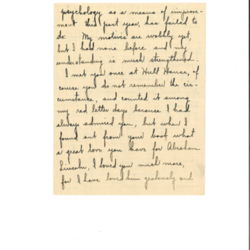 psychology as a means of improve-
ment this past year, has failed to
do. My motives are wobbly yet,
but I had none before and my
understanding is much strengthened.
I met you once at Hull House, of
course you do not remember the cir-
cumstance, and counted it among
my red letter days because I had
always admired you, but when I
found out from your book what
a great love you have for Abraham
Lincoln, I loved you much more,
for I have loved him zealously and